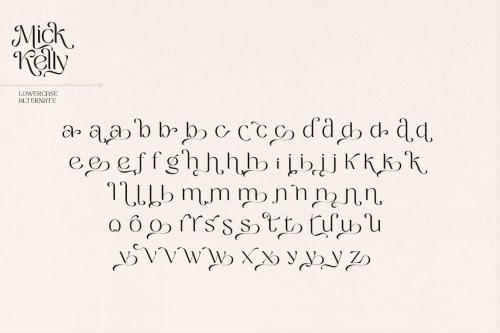 Mick
Kelly
LOWERCASE
ALTERNATE
a a a b b b c c c c d d d d d d
e e e f f g h h h h i j j j j k k k k
l l l l b m m m n n n n n
o o o r r s s s t t t u u u
v v v w w x x y y y z